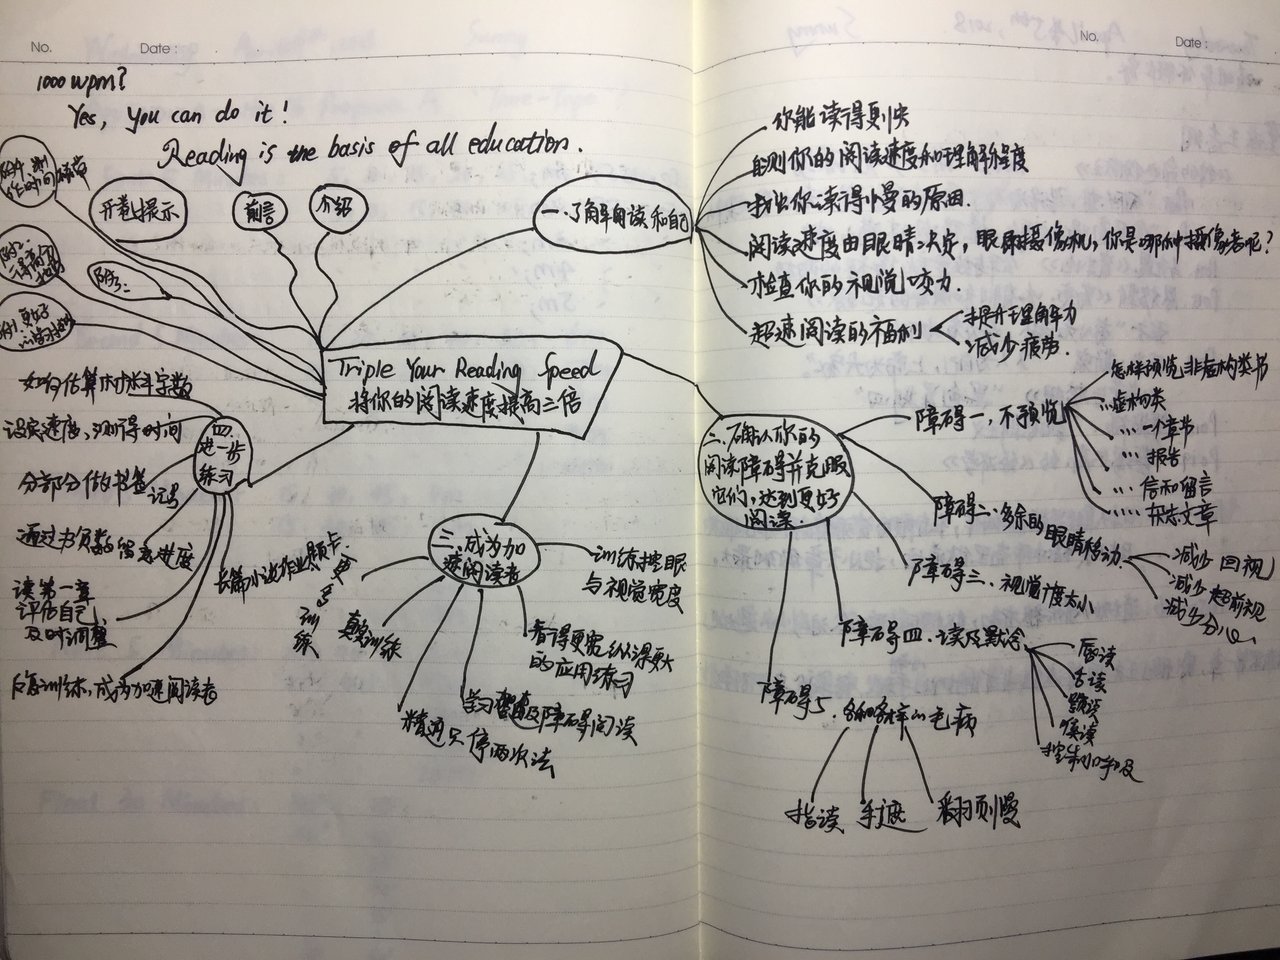 No.
Date :
No.
Date :
1000 wpm?
Yes, you can do it!
Reading is the basis of all education.
开卷提示
前言
介绍
Triple Your Reading Speed
将你的阅读速度提高三倍
一.了解阅读和自己
你能读得更快
自测你的阅读速度和理解程度
找出你读得慢的原因.
阅读速度由眼睛决定，眼睛摄像机，你是哪种摄像者呢？
检查你的视觉能力.
超速阅读的福利
提升理解力
减少疲劳.
二.确认你的
阅读障碍并克服
它们，达到更好
阅读.
障碍一.不预览
怎样预览非虚构类书
...虚构类
... 一个章节
... 报告
... 信和留言
..... 杂志文章
障碍二.多余的眼睛移动
减少回视
减少超前视
减少分心
障碍三.视觉广度太小
障碍四.读及默念
唇读
舌读
喉读
障碍5.各种各样的毛病
指读
手遮
翻页慢
三.成为加
速阅读者
训练控眼
与视觉宽度
看得更宽以读更大
的应用练习
学习 障碍阅读
精通只停两次法
真实训练
更多训练
四.
进一步
练习
如何估算材料字数
设定速度，测得时间
分部分做书签记号
通过书页数留意进度
长篇小说作业题卡
读第一章
评估自己
及时调整
反复训练，成为加速阅读者